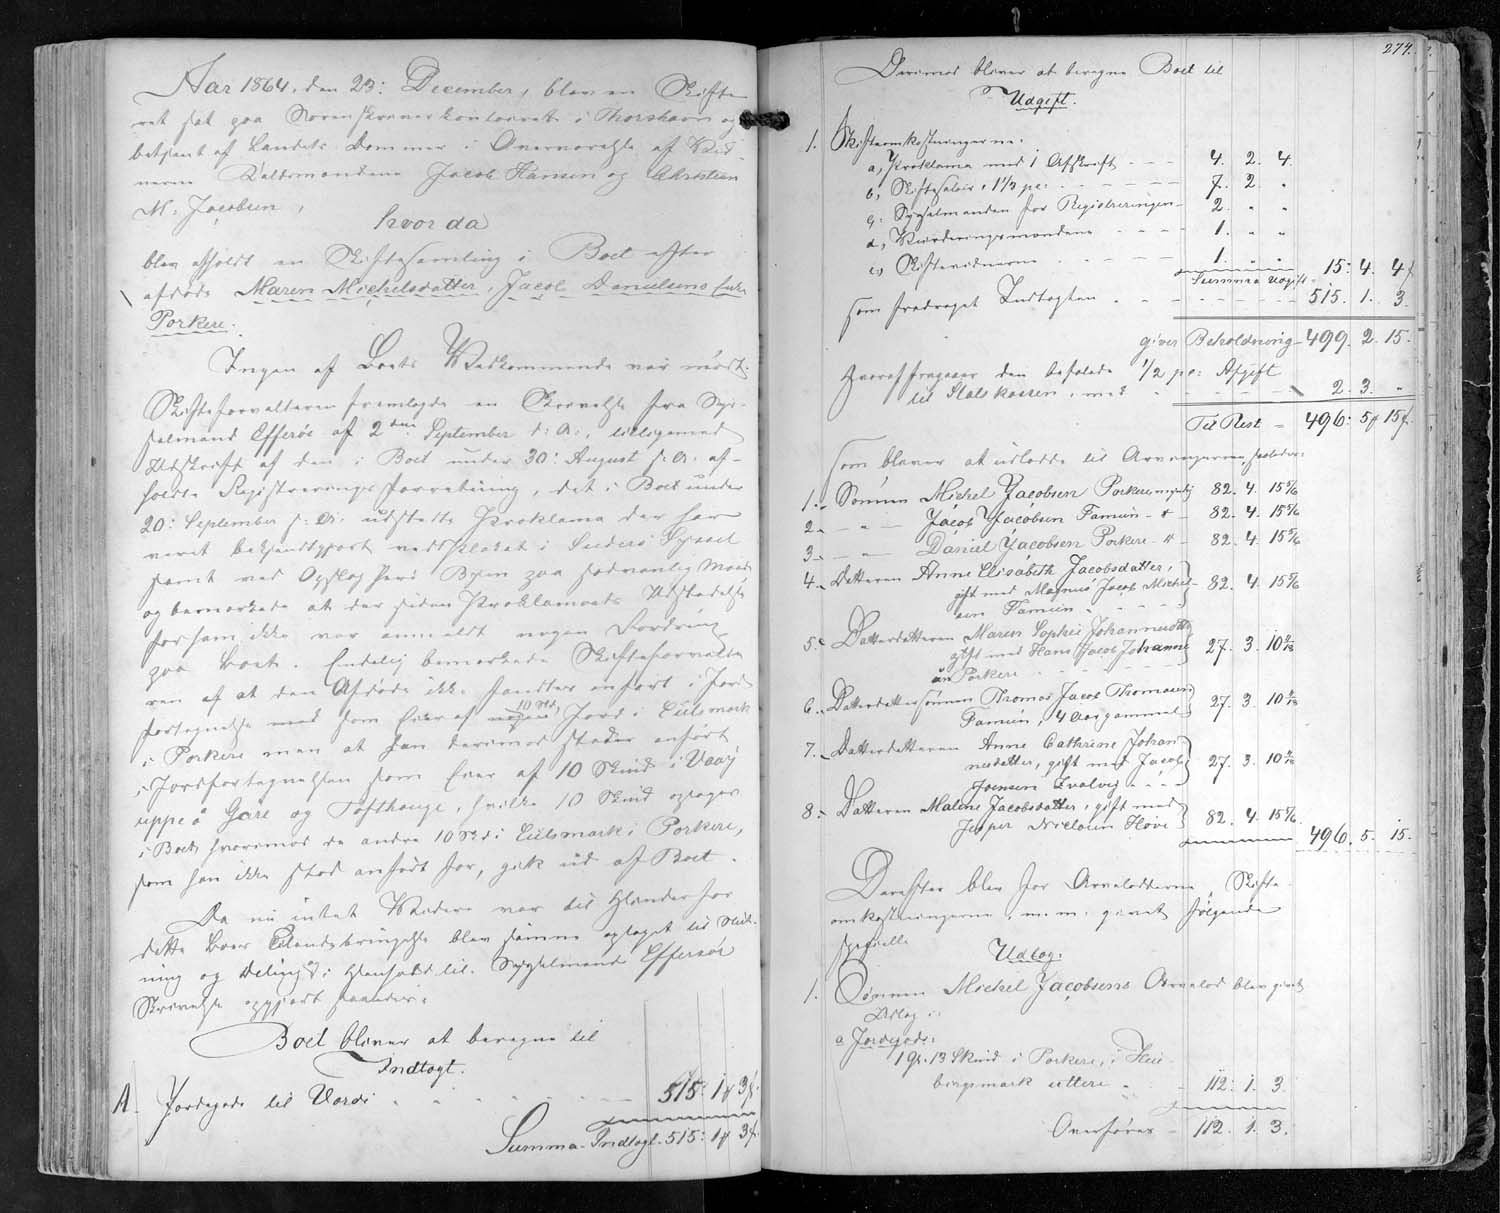 Aar 1864, den 23: December, blev en Skifte-
ret sat paa Sorenskriverkontoiret i Thorshavn og
betjent af Landets Dommer i Overværelse af Vid-
nerne Jacob Hansen og Christian
M. Jacobsen,
hvor da
blev afholdt en Skiftesamling i Boet efter
afdøde Maren Michelsdatter, Jacob Danielsens Enke
Porkere.
Ingen af Boets Vedkommende var mødt.
Skifteforvalteren fremlagde en Skrivelse fra Sys-
selmand Effersøe af 2den September d: A:, tilligemed
Udskrift af den i Boet under 30: August s: A: af-
holdte Registreringsforretning, det i Boet under
20: September s: A: udstedte Proklama der har
været bekjendtgjort ved Plakat i Suderø Syssel
samt ved Opslag paa sædvanlig Maade
og bemærkede at der siden Proklamaets Udstedelse
forsam ikke var anmeldt nogen Fordring
paa Boet. Endelig bemærkede Skifteforvalte-
ren af at den Afdøde ikke fandtes anført i Jord-
fortegnelse som Eier af 10 Skd. Jord i
i Porkere men at han derimod stader anført
i Jordfortegnelsen som Eier af 10 Skind i Vaag
uppe á Gare og Tofthauge, hvilke 10 Skind optages
i Boet, hvorimod de andre 10 Skd i i Porkere,
som han ikke stod anført for, gik ud af Boet.
Da nu intet Videre var til Hinder for
dette Boes blev samme optaget til Slut-
ning og Deling i Henhold til Sysselmand Effersøe
Skrivelse opgjort saaledes:
Boet bliver at beregne til
Indtægt.
A. Jordegods til Værdi 515: 1 3
Summa Indtægt. 515: 1 3
274.
Derimod bliver at beregne Boet til
Udgift.
1. Skifteomkostningerne:
a, Proklama med 1 Afskrift 4. 2. 4.
b, Skiftesalair, 1 1/2 pc: 7. 2. "
c, Sysselmanden for Registreringen 2. " "
d, Vurderingsmændene 1. " "
e, Skiftevidnerne 1. " "
Summa Udgift 15: 4. 4
som fradraget Indtægten 515. 1. 3.
giver Beholdning 499. 2. 15.
hvoraf fragaaer den befalede 1/2 pc: Afgift
til Statskassen, med 2. 3. "
Til Rest 496: 5 15
som bliver at udlodde til Arvingerne, saaledes:
1. Sønnen Michel Jacobsen Porkere, myndig 82. 4. 15 5/6
2. " Jacob Jacobsen Famien " 82. 4. 15 5/6
3. " Daniel Jacobsen Porkere " 82. 4. 15 5/6
4. Datteren Anne Elisabeth Jacobsdatter,
gift med Magnus Jacob Michel-
sen Famien 82. 4. 15 5/6
5. Datterdatteren Maren Sophie Johannesdtr
gift med Hans Jacob Johanne-
sen Porkere 27. 3. 10
6. Datterdattersønnen Thomas Jacob Thomasen
Famien, 4 Aar gammel 27. 3. 10
7. Datterdatteren Anne Cathrine Johan-
nesdatter, gift med Jacob
Joensen Qvalvig 27. 3. 10
8. Datteren Maline Jacobsdatter, gift med
Jesper Nielsen Hove 82. 4. 15 5/6
496. 5. 15.
Derefter blev for Arvelodderne, Skifte-
omkostningerne m. m. givet følgende
specielle
Udlæg:
1. Sønnen Michel Jacobsens Arvelod blev givet
Udlæg i:
a Jordegods:
1 Gl. 13 Skind i Porkere, i
bingsmark uttere 112: 1. 3.
Overføres 112. 1. 3.